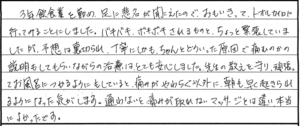 3年飲食業を勤め、足に悲名が聞こえたので、おもいきって、トオルカイロに
行ってみることにしました。バキバキ、ボキボキされるものと、ちょっと緊張していま
したが、予想は裏切られ、丁寧にしかも、ちゃんとどういった原因で痛むのかの
説明もしてもらいながらの治療はとても安心しました。先生の教えを守り、頑張っ
てお風呂につかるようにもしていると、痛みがやわらぐ以外に、朝も早く起きられ
るようになった気がします。通わないと痛みが取れないマッサージとは違い本当に
よかったです。